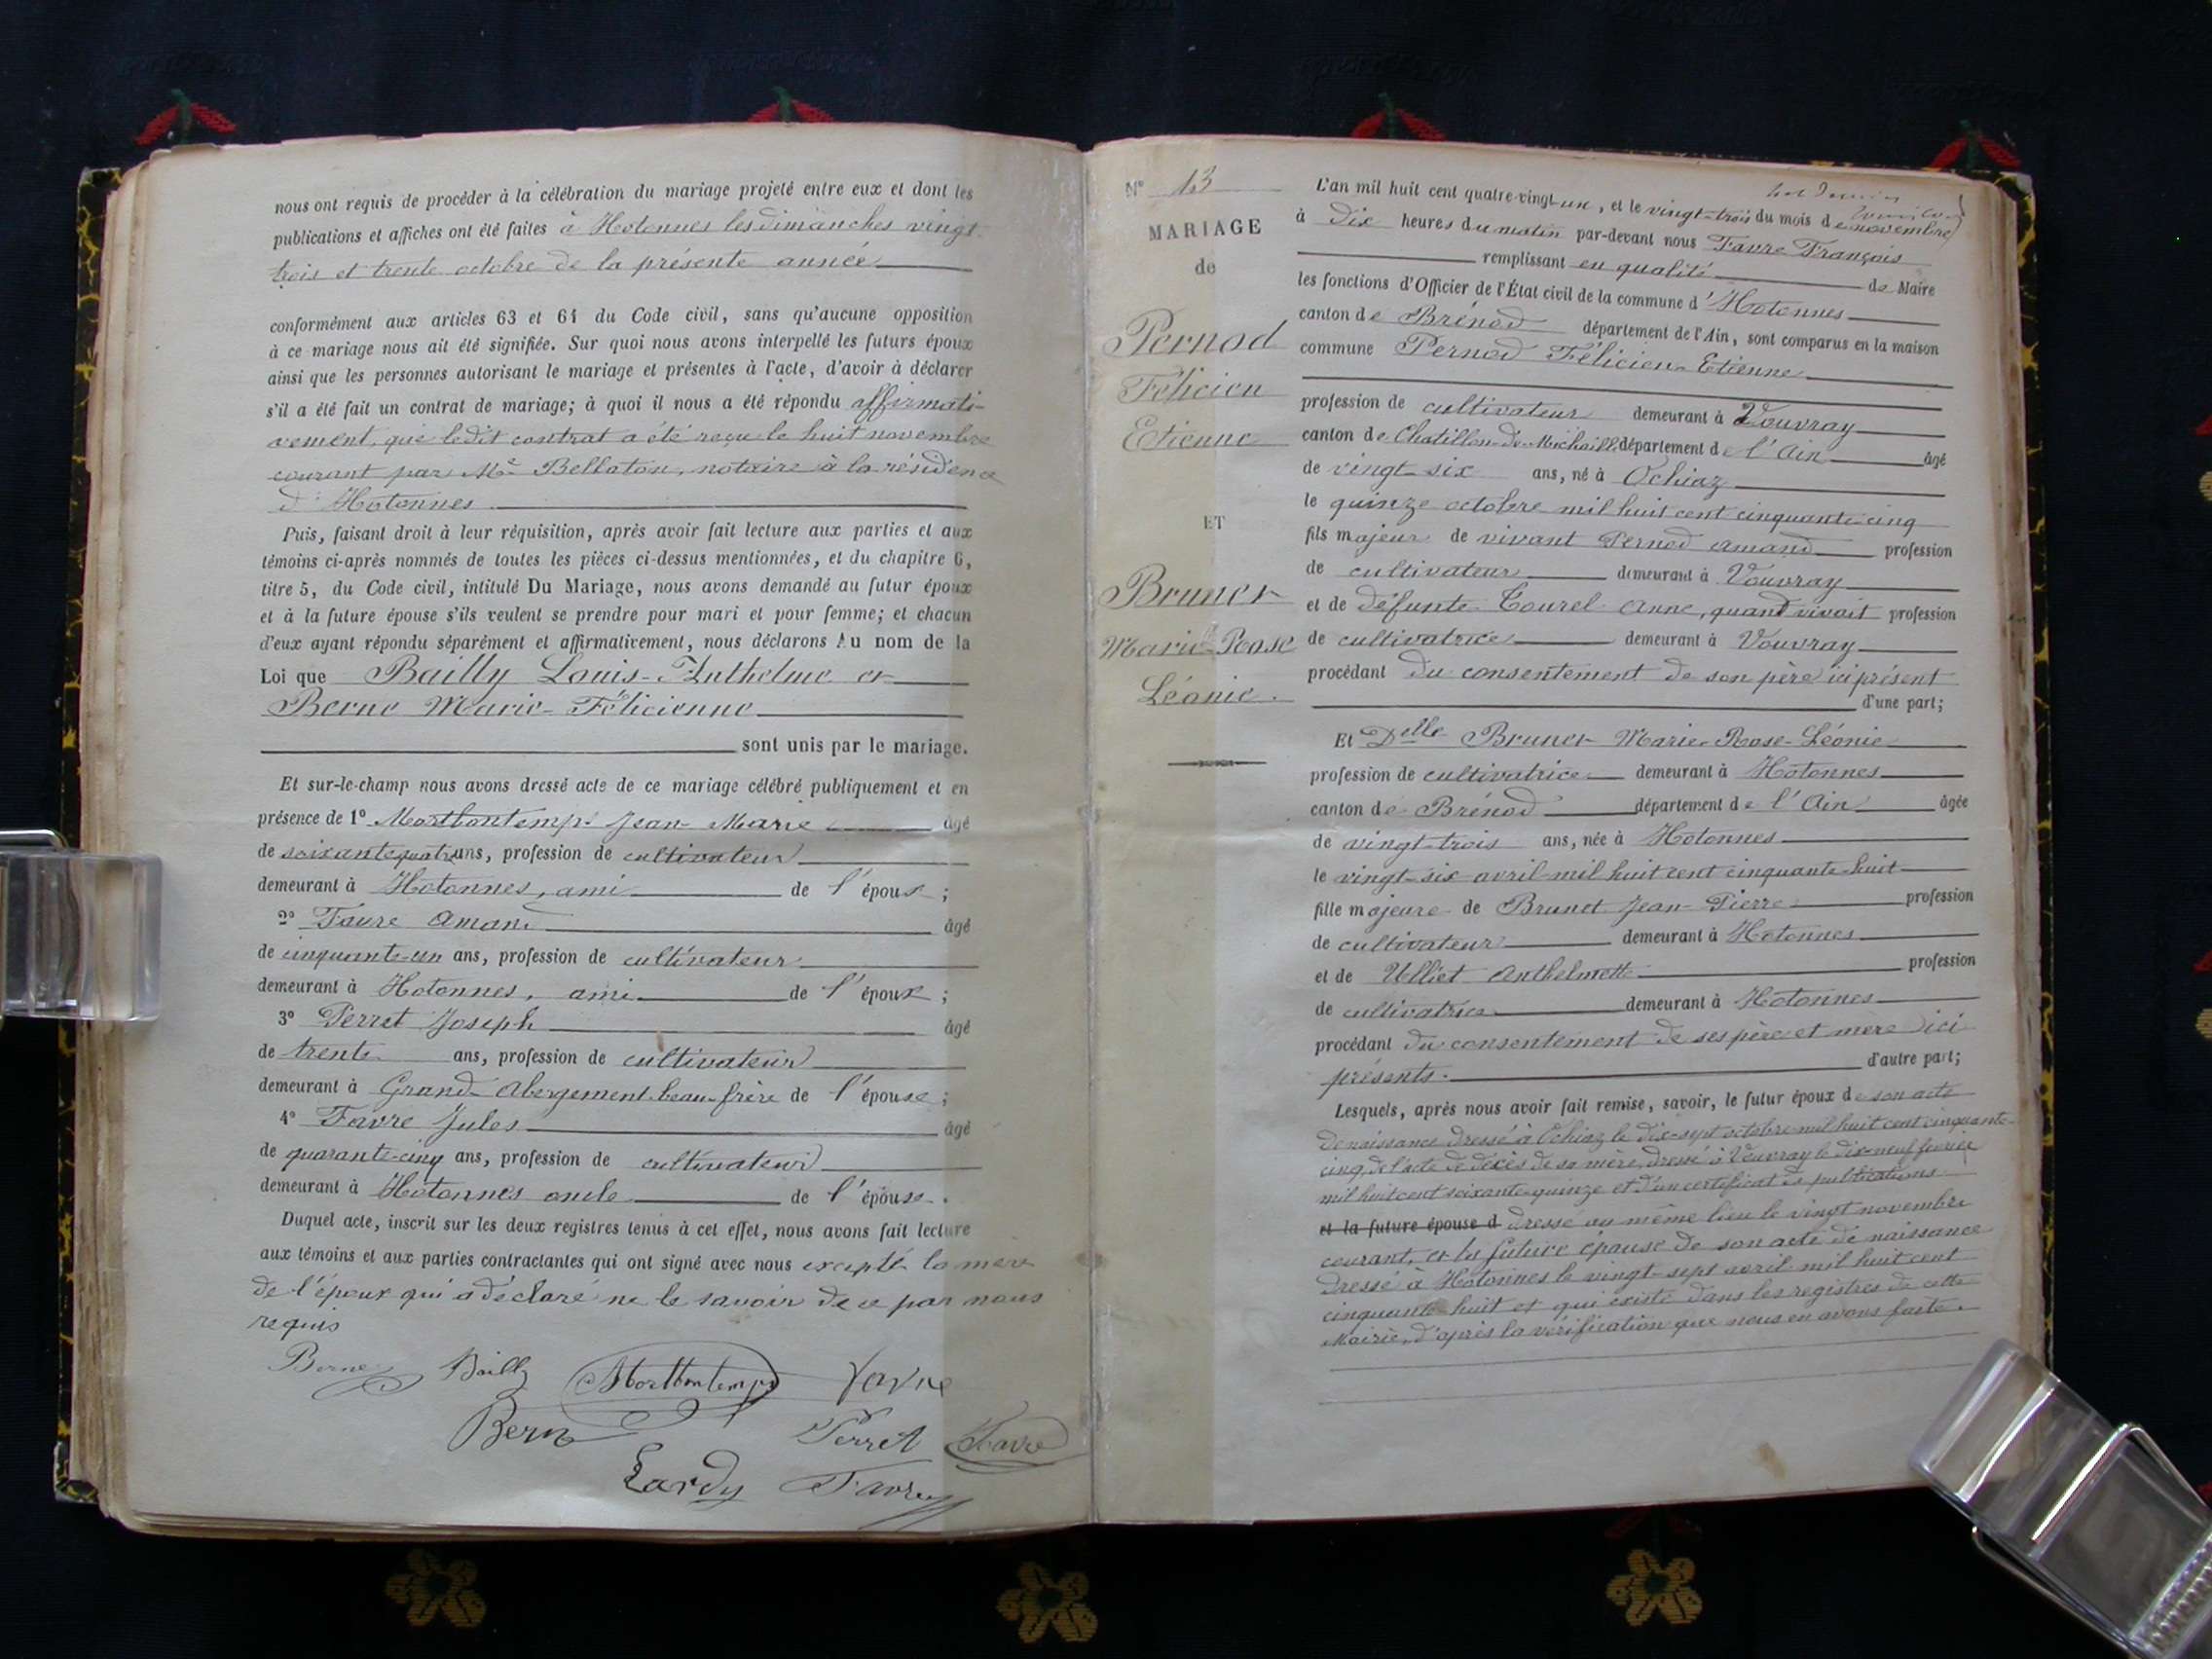 nous ont requis de procéder à la célébration du mariage projeté entre eux et dont les
publications et affiches ont été faites à Hotonnes les dimanches vingt
trois et trente octobre de la présente année
conformément aux articles 63 et 64 du Code civil, sans qu'aucune opposition
à ce mariage nous ait été signifiée. Sur quoi nous avons interpellé les futurs époux
ainsi que les personnes autorisant le mariage et présentes à l'acte, d'avoir à déclarer
s'il a été fait un contrat de mariage; à quoi il nous a été répondu affirmati-
vement, que ledit contrat a été reçu le huit novembre
courant par Me Bellaton, notaire à la résidence
d'Hotonnes.
Puis, faisant droit à leur réquisition, après avoir fait lecture aux parties et aux
témoins ci-après nommés de toutes les pièces ci-dessus mentionnées, et du chapitre 6,
titre 5, du Code civil, intitulé Du Mariage, nous avons demandé au futur époux
et à la future épouse s'ils veulent se prendre pour mari et pour femme; et chacun
d'eux ayant répondu séparément et affirmativement, nous déclarons Au nom de la
Loi que Bailly Louis-Anthelme et
Berne Marie-Félicienne
sont unis par le mariage.
Et sur-le-champ nous avons dressé acte de ce mariage célébré publiquement et en
présence de 1° Mortbontemps Jean-Marie âgé
de soixante quatre ans, profession de cultivateur
demeurant à Hotonnes, ami de l'époux;
2° Favre Amand âgé
de cinquante-un ans, profession de cultivateur
demeurant à Hotonnes, ami de l'époux;
3° Perret Joseph âgé
de trente ans, profession de cultivateur
demeurant à Grand-Abergement beau-frère de l'épouse;
4° Favre Jules âgé
de quarante-cinq ans, profession de cultivateur
demeurant à Hotonnes oncle de l'épouse.
Duquel acte, inscrit sur les deux registres tenus à cet effet, nous avons fait lecture
aux témoins et aux parties contractantes qui ont signé avec nous excepté la mère
de l'époux qui a déclaré ne le savoir de ce par nous
requis
Berne Bailly Mortbontemps Favre
Berne Perret Favre
Lardy Favre
N° 13
MARIAGE
de
Pernod
Félicien
Etienne
ET
Brunet
Marie-Rose
Léonie.
L'an mil huit cent quatre-vingt-un, et le vingt-trois du mois de novembre
à dix heures du matin par-devant nous Favre François
remplissant en qualité de Maire
les fonctions d'Officier de l'État civil de la commune d'Hotonnes
canton de Brénod département de l'Ain, sont comparus en la maison
commune Pernod Félicien-Etienne
profession de cultivateur demeurant à Vouvray
canton de Chatillon-de-Michaille département de l'Ain âgé
de vingt-six ans, né à Ochiaz
le quinze octobre mil huit cent cinquante-cinq
fils majeur de vivant Pernod Amand profession
de cultivateur demeurant à Vouvray
et de défunte Tourel Anne, quand vivait profession
de cultivatrice demeurant à Vouvray
procédant du consentement de son père ici présent
d'une part;
Et Delle Brunet Marie-Rose-Léonie
profession de cultivatrice demeurant à Hotonnes
canton de Brénod département de l'Ain âgée
de vingt-trois ans, née à Hotonnes
le vingt-six avril mil huit cent cinquante-huit
fille majeure de Brunet Jean-Pierre profession
de cultivateur demeurant à Hotonnes
et de Ulliet Anthelmette profession
de cultivatrice demeurant à Hotonnes
procédant du consentement de ses père et mère ici
présents. d'autre part;
Lesquels, après nous avoir fait remise, savoir, le futur époux de son acte
de naissance dressé à Ochiaz le dix-sept octobre mil huit cent cinquante-
cinq, de l'acte de décès de sa mère, dressé à Vouvray le dix-neuf février
mil huit cent soixante-quinze et d'un certificat de publications
et la future épouse d dressé au même lieu le vingt novembre
courant, et la future épouse de son acte de naissance
dressé à Hotonnes le vingt-sept avril mil huit cent
cinquante-huit et qui existe dans les registres de cette
Mairie, d'après la vérification que nous en avons faite.